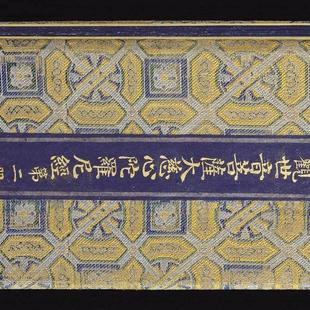 觀世音菩薩大慈心陀羅尼經 第二